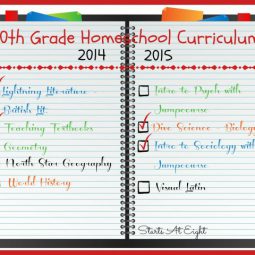 0th Grade Homeschool Curriculum
2014
Lightning Literature -
British Lit
Teaching Textbooks
Geometry
North Star Geography
World History
2015
Intro to Psych with
Jumpcourse
Dive Science - Biology
Intro to Sociology with
Jumpcourse
Visual Latin
Starts At Eight